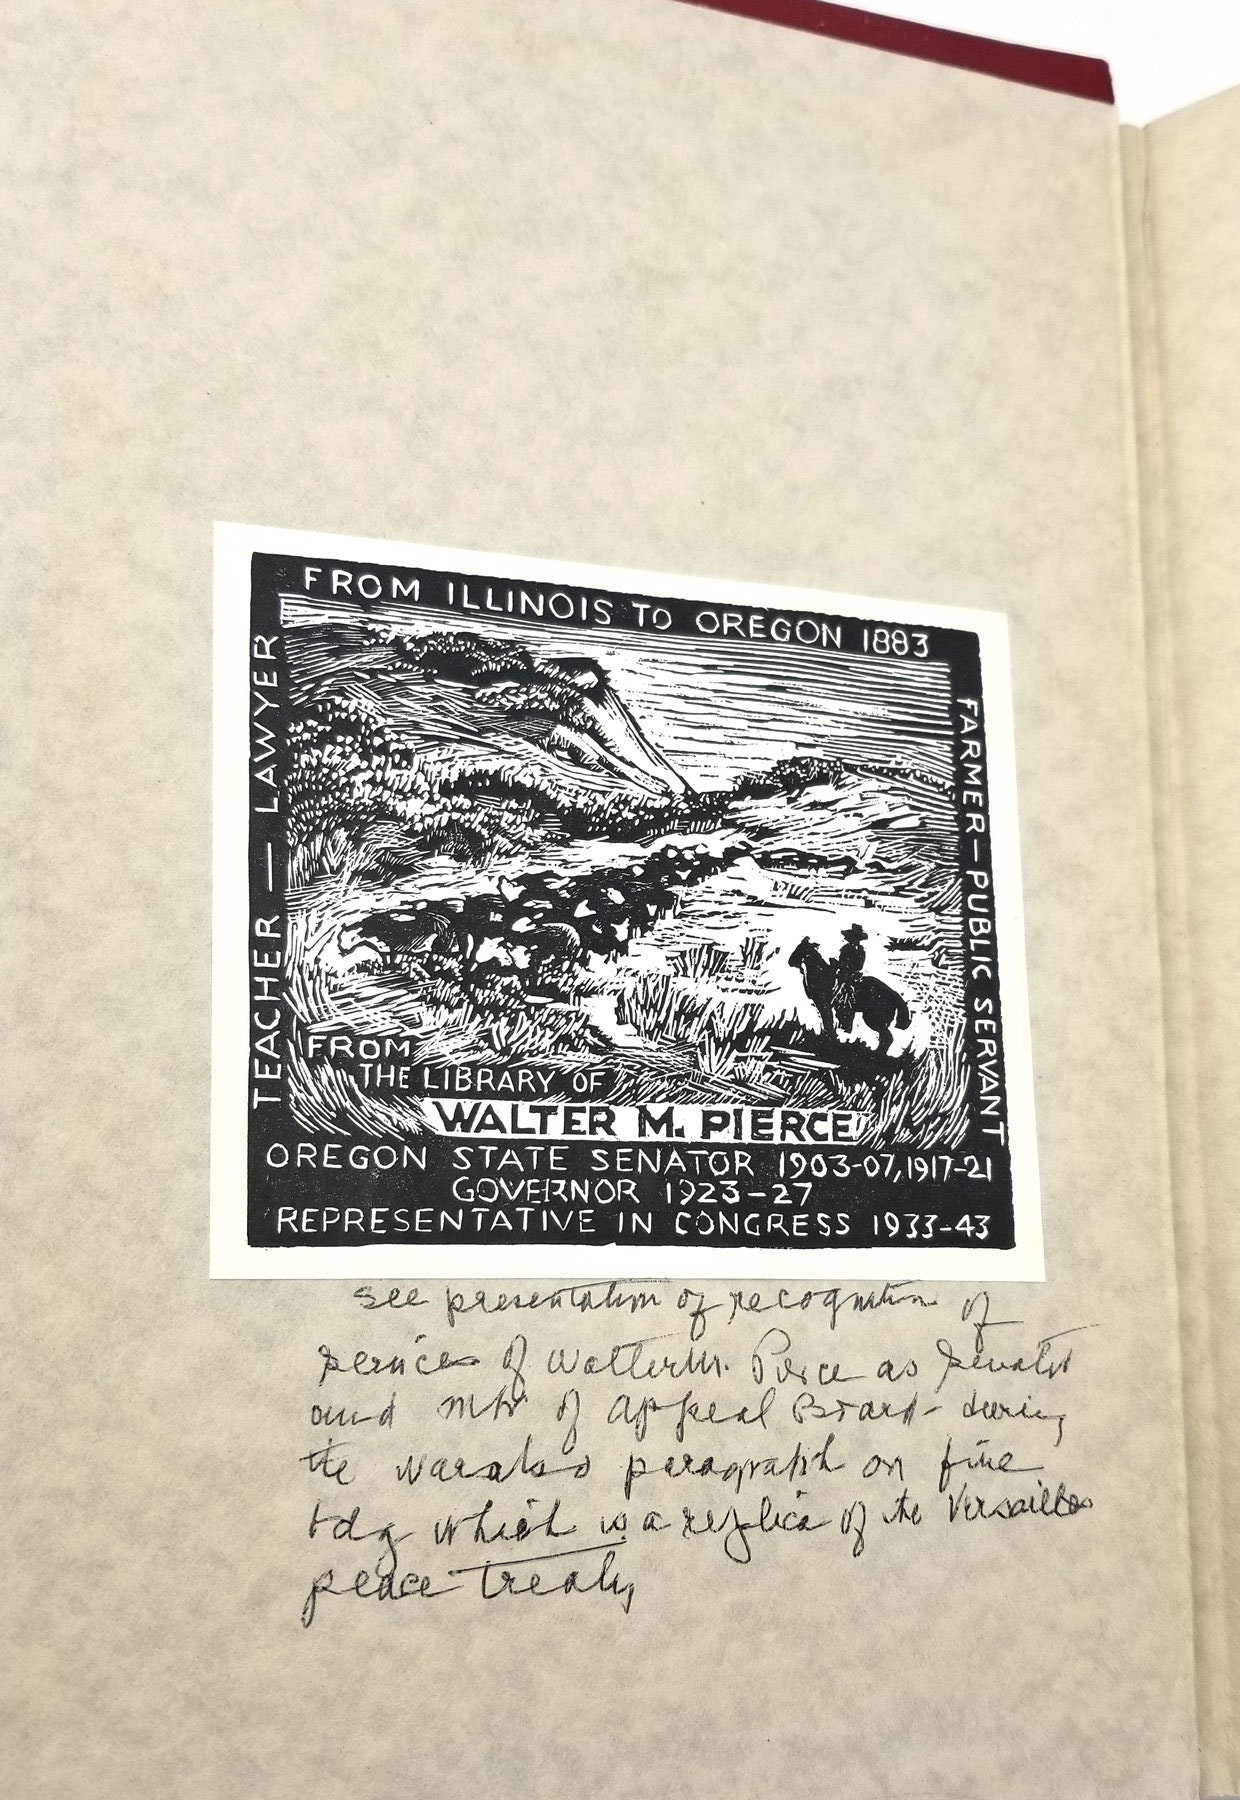 FROM ILLINOIS TO OREGON 1883
TEACHER — LAWYER
FARMER — PUBLIC SERVANT
FROM
THE LIBRARY OF
WALTER M. PIERCE
OREGON STATE SENATOR 1903-07, 1917-21
GOVERNOR 1923-27
REPRESENTATIVE IN CONGRESS 1933-43
See presentation of recognition of
services of Walter M. Pierce as Senator
and Mbr of Appeal Board - during
the war also paragraph on fine
bdg which is a replica of the Versailles
peace treaty